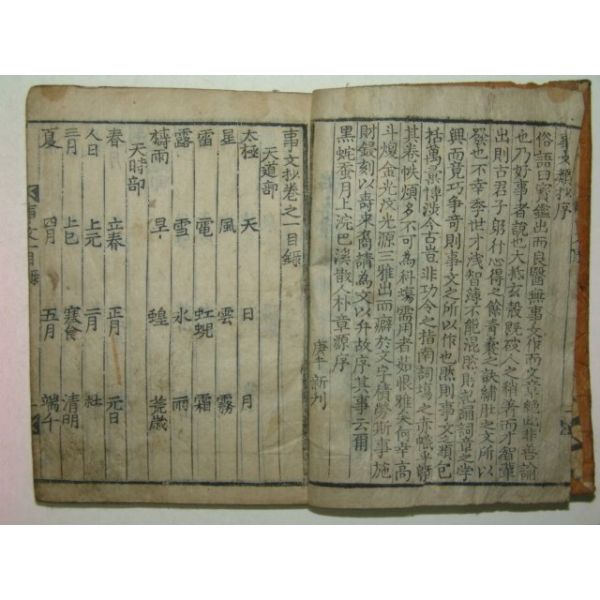 事文類抄序
俗語曰寶鑑出而良醫無事文作而文章絶此非善諭
也乃好事者說也大抵玄殼旣破人之稍善而才智輩
出則古君子躬行心得之餘奇囊之訣繡肚之文所以
發也不幸季世才浅智薄不能混然則記誦詞章之学
興而竟巧爭奇則事文之所以作也然則事文之類包
括萬景博淡今古豈非功令之指南詞場之赤幟
其卷帙煩多不可為科塲需用者茹恨雅矣何幸高
斗煥金光汶光源三雅出而癖於文字積勞斯事施
財鋟刻以壽来裔請為文以弁故序其事云爾
黒蛇蚕月上浣巴溪散人朴章源序
庚午新刋
事文抄卷之一目錄
天道部
太極 天 日 月
星 風 雲 霧
雷 電 虹蜺 霜
露 雪 氷 雨
禱雨 旱 蝗 荒歳
天時部
春 立春 正月 元日
人日 上元 二月 社
三月 上巳 寒食 清明
夏 四月 五月 端午
事文 目錄